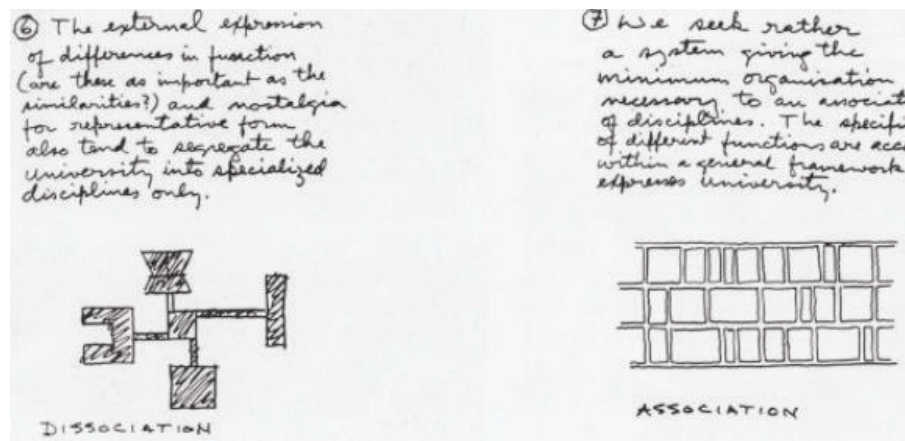 ⑥ The external expression
of differences in function
(are these as important as the
similarities?) and nostalgia
for representative form
also tend to segregate the
university into specialized
disciplines only.
DISSOCIATION
⑦ We seek rather
a system giving the
minimum organisation
necessary to an associat
of disciplines. The specifi
of different functions are acc
within a general framework
expresses university.
ASSOCIATION